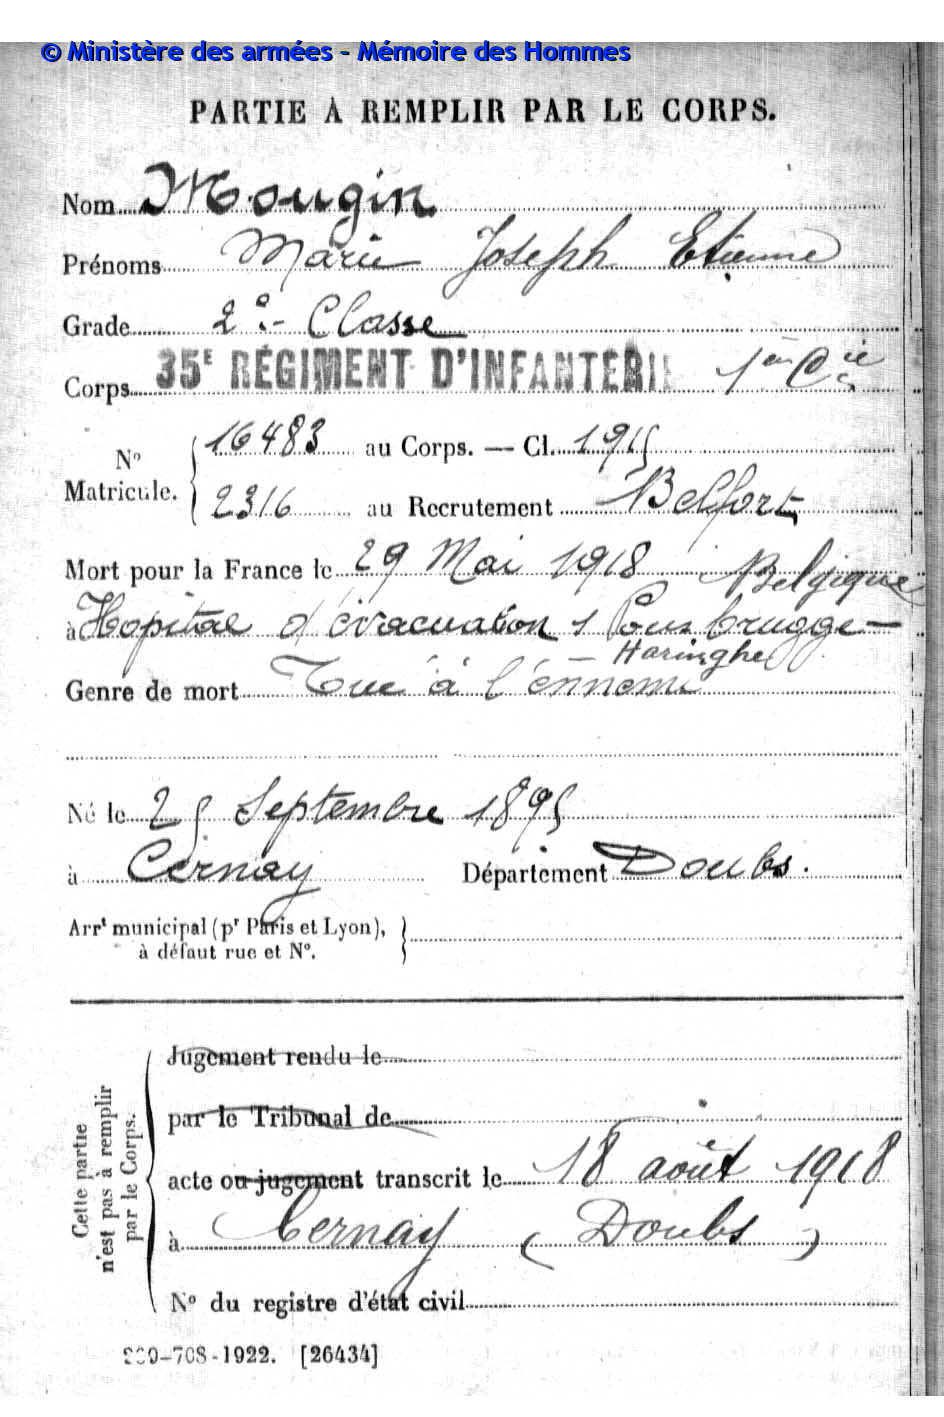 © Ministère des armées - Mémoire des Hommes
PARTIE À REMPLIR PAR LE CORPS.
Nom Mougin
Prénoms Marie Joseph Etienne
Grade 2e Classe
Corps 35E RÉGIMENT D'INFANTERIE 1ère Cie
No Matricule. { 16483 au Corps. — Cl. 1915
2316 au Recrutement Belfort
Mort pour la France le 29 Mai 1918 Belgique
à Hopital d'évacuation 1 Rousbrugge -
- Haringhe
Genre de mort Tué à l'ennemi
Né le 25 Septembre 1895
à Cernay Département Doubs.
Arrt municipal (pr Paris et Lyon), }
à défaut rue et No.
Cette partie
n'est pas à remplir
par le Corps.
Jugement rendu le
par le Tribunal de
acte ou jugement transcrit le 18 août 1918
à Cernay (Doubs)
No du registre d'état civil
-708-1922. [26434]